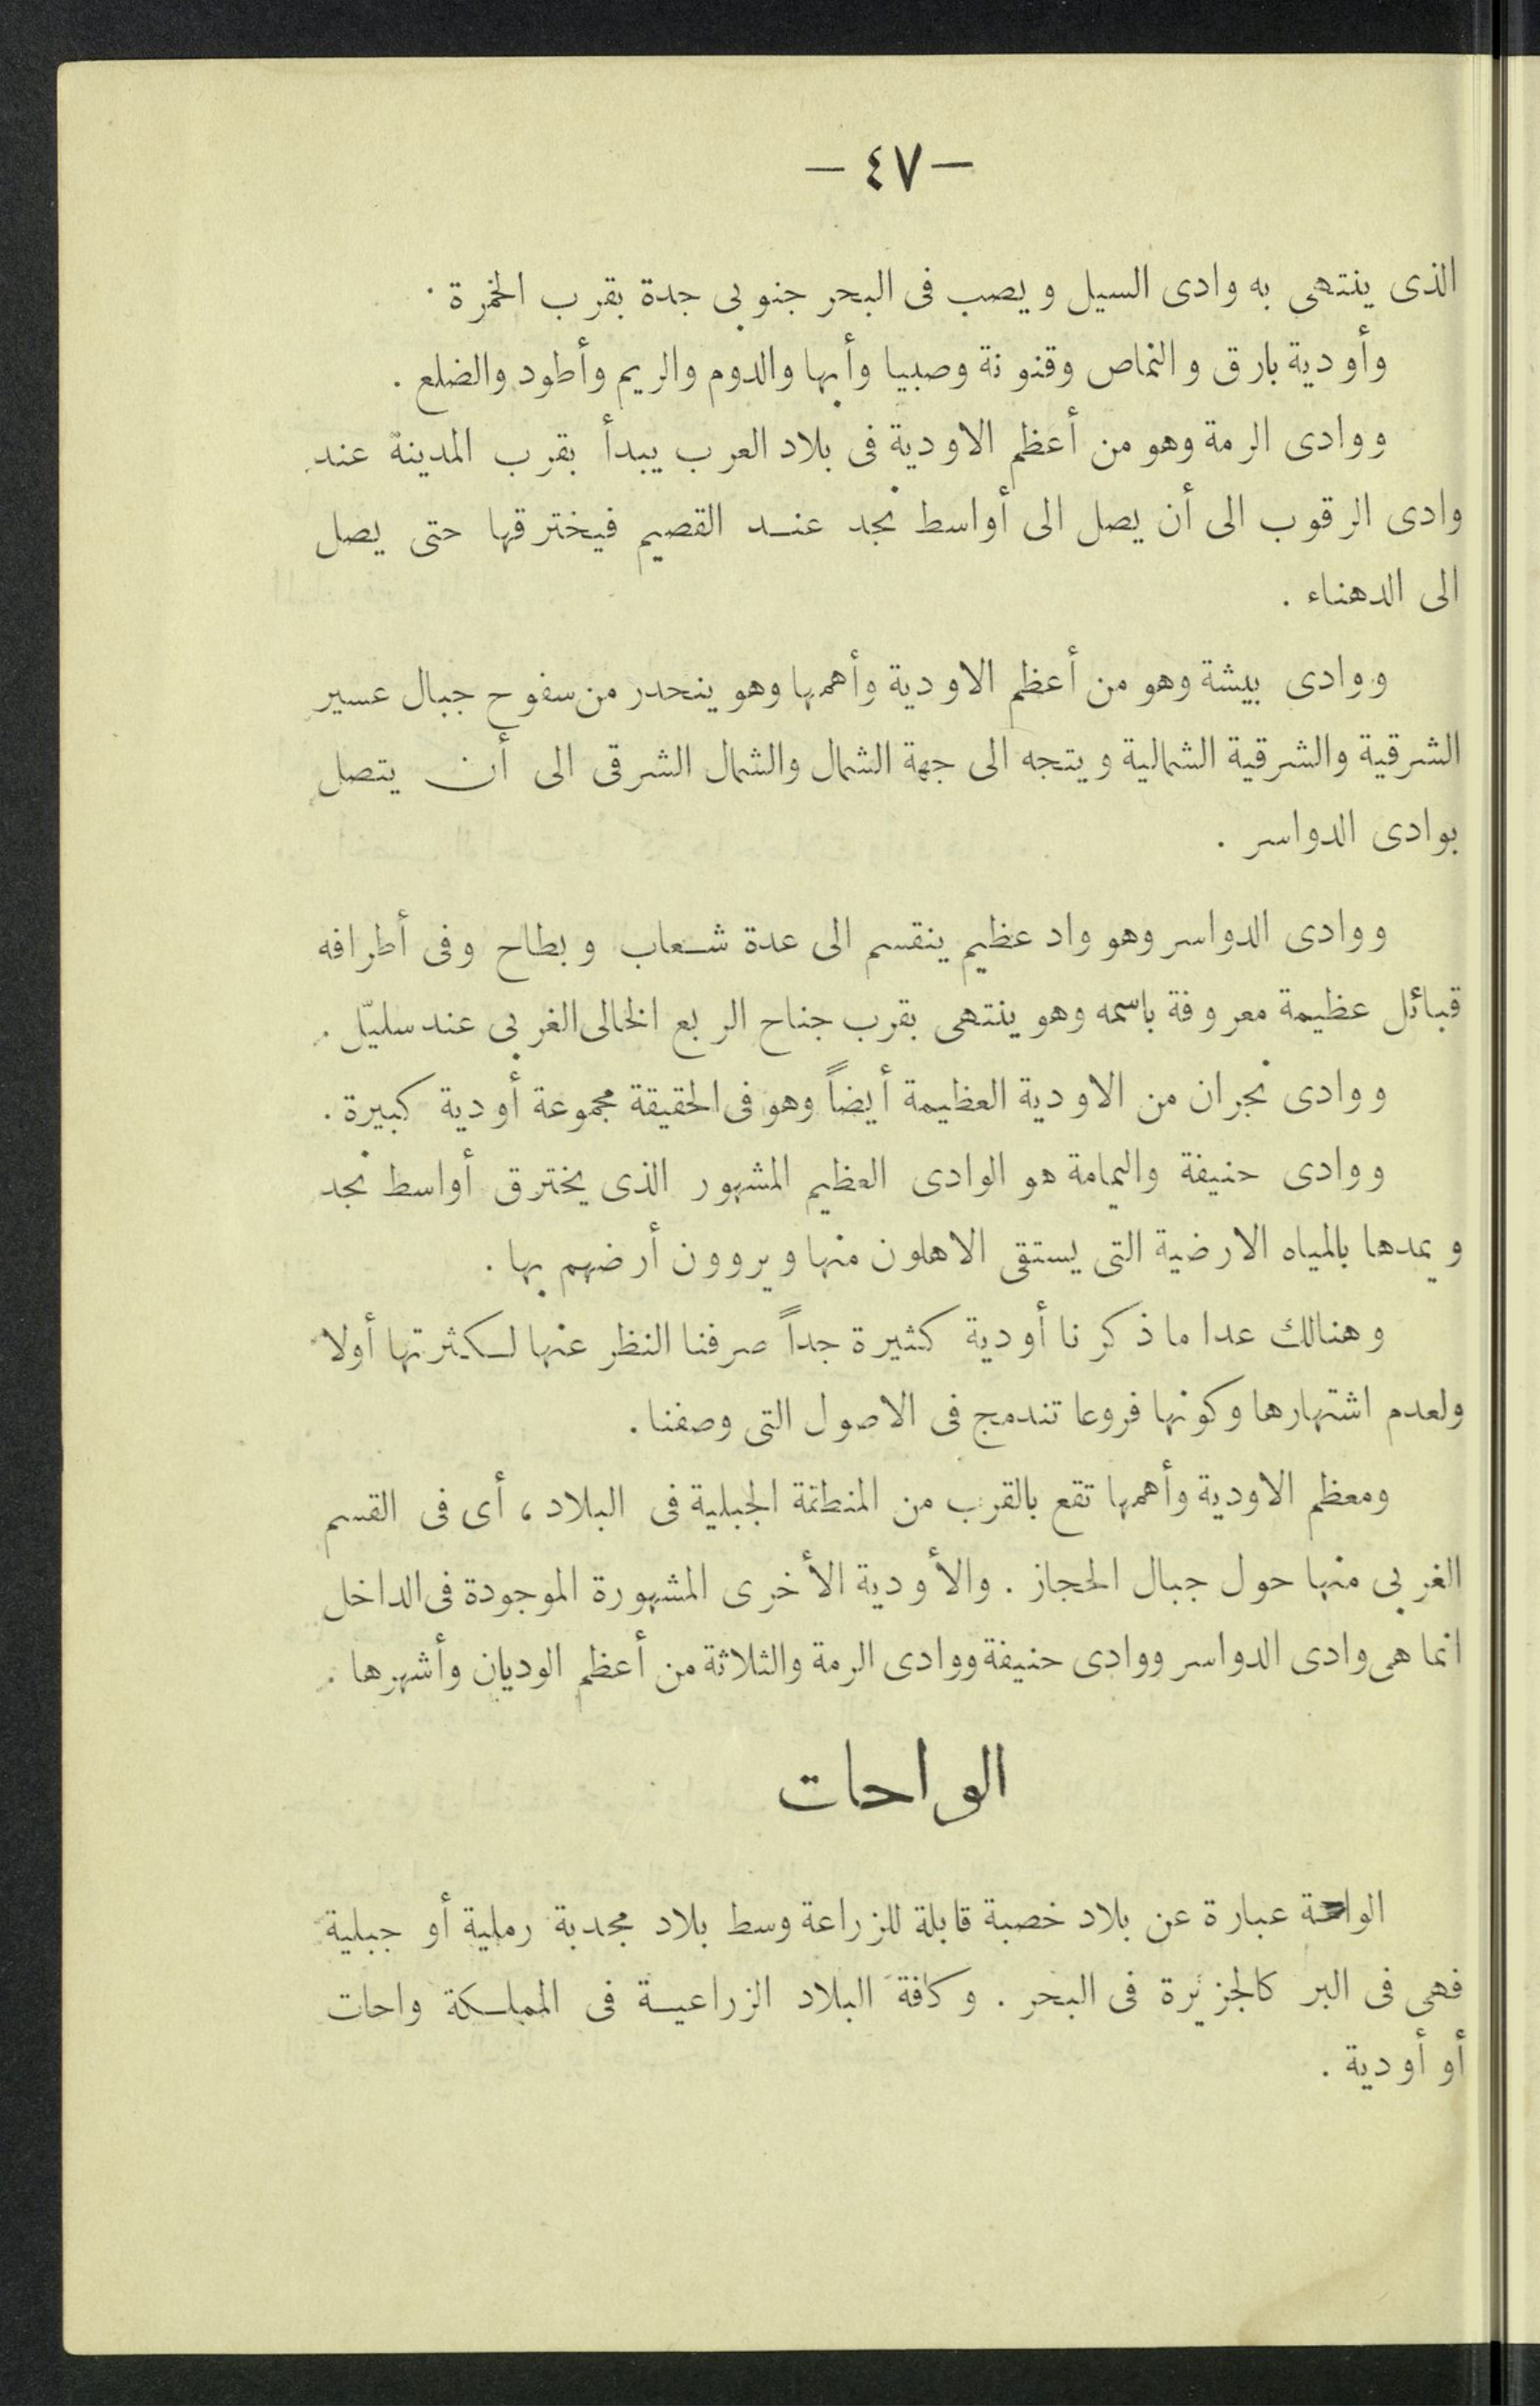 — ٤٧ —
الذى ينتهى به وادى السيل ويصب فى البحر جنوبى جدة بقرب الخمرة .
وأودية بارق والنماص وقنونة وصبيا وأبها والدوم والريم وأطود والضلع .
ووادى الرمة وهو من أعظم الاودية فى بلاد العرب يبدأ بقرب المدينة عند
وادى الرقوب الى أن يصل الى أواسط نجد عند القصيم فيخترقها حتى يصل
الى الدهناء .
ووادى بيشة وهو من أعظم الاودية وأهمها وهو ينحدر من سفوح جبال عسير
الشرقية والشرقية الشمالية ويتجه الى جهة الشمال والشمال الشرقى الى أن يتصل
بوادى الدواسر .
ووادى الدواسر وهو واد عظيم ينقسم الى عدة شعاب وبطاح وفى أطرافه
قبائل عظيمة معروفة باسمه وهو ينتهى بقرب جناح الربع الخالى الغربى عند سليّل .
ووادى نجران من الاودية العظيمة أيضاً وهو فى الحقيقة مجموعة أودية كبيرة .
ووادى حنيفة واليمامة هو الوادى العظيم المشهور الذى يخترق أواسط نجد
ويمدها بالمياه الارضية التى يستقى الاهلون منها ويروون أرضهم بها .
وهنالك عدا ما ذكرنا أودية كثيرة جداً صرفنا النظر عنها لكثرتها أولا
ولعدم اشتهارها وكونها فروعا تندمج فى الاصول التى وصفنا .
ومعظم الاودية وأهمها تقع بالقرب من المنطقة الجبلية فى البلاد ، أى فى القسم
الغربى منها حول جبال الحجاز . والأودية الأخرى المشهورة الموجودة فى الداخل
انما هى وادى الدواسر ووادى حنيفة ووادى الرمة والثلاثة من أعظم الوديان وأشهرها .
الواحات
الواحة عبارة عن بلاد خصبة قابلة للزراعة وسط بلاد مجدبة رملية أو جبلية
فهى فى البر كالجزيرة فى البحر . وكافة البلاد الزراعية فى المملكة واحات
أو أودية .